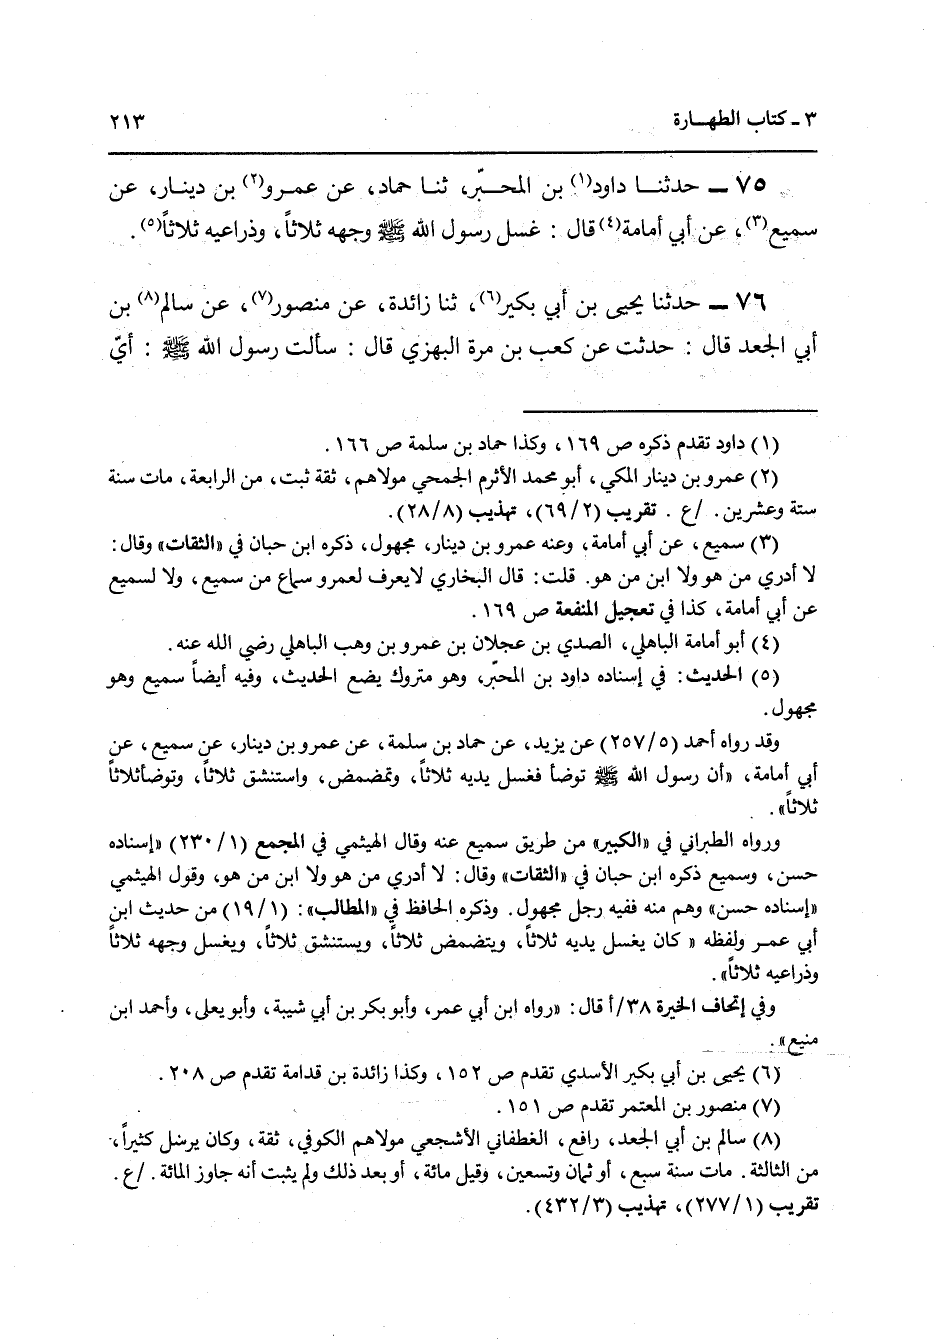 ٣ ـ كتاب الطهـــارة ٢١٣
٧٥ ــ حدثنـــا داود(١) بن المحـــبّر، ثنـا حماد، عن عمـرو(٢) بن دينـار، عن
سميع(٣)، عن أبي أمامة(٤) قال : غسل رسول الله ﷺ وجهه ثلاثاً، وذراعيه ثلاثاً(٥).
٧٦ ــ حدثنا يحيى بن أبي بكير(٦)، ثنا زائدة، عن منصور(٧)، عن سالم(٨) بن
أبي الجعد قال : حدثت عن كعب بن مرة البهزي قال : سألت رسول الله ﷺ : أيّ
(١) داود تقدم ذكره ص ١٦٩، وكذا حماد بن سلمة ص ١٦٦.
(٢) عمرو بن دينار المكي، أبو محمد الأثرم الجمحي مولاهم، ثقة ثبت، من الرابعة، مات سنة
ستة وعشرين. /ع . تقريب (٦٩/٢)، تهذيب (٢٨/٨).
(٣) سميع، عن أبي أمامة، وعنه عمرو بن دينار، مجهول، ذكره ابن حبان في «الثقات» وقال:
لا أدري من هو ولا ابن من هو. قلت: قال البخاري لايعرف لعمرو سماع من سميع، ولا لسميع
عن أبي أمامة، كذا في تعجيل المنفعة ص ١٦٩.
(٤) أبو أمامة الباهلي، الصدي بن عجلان بن عمرو بن وهب الباهلي رضي الله عنه.
(٥) الحديث: في إسناده داود بن المحبّر، وهو متروك يضع الحديث، وفيه أيضاً سميع وهو
مجهول.
وقد رواه أحمد (٢٥٧/٥) عن يزيد، عن حماد بن سلمة، عن عمرو بن دينار، عن سميع، عن
أبي أمامة، «أن رسول الله ﷺ توضأ فغسل يديه ثلاثاً، وتمضمض، واستنشق ثلاثاً، وتوضأثلاثاً
ثلاثاً».
ورواه الطبراني في «الكبير» من طريق سميع عنه وقال الهيثمي في المجمع (٢٣٠/١) «إسناده
حسن، وسميع ذكره ابن حبان في «الثقات» وقال: لا أدري من هو ولا ابن من هو، وقول الهيثمي
«إسناده حسن» وهم منه ففيه رجل مجهول. وذكره الحافظ في «المطالب»: (١٩/١) من حديث ابن
أبي عمـر ولفظه « كان يغسل يديه ثلاثاً، ويتضمض ثلاثاً، ويستنشق ثلاثاً، ويغسل وجهه ثلاثاً
وذراعيه ثلاثاً».
وفي إتحاف الخيرة ٣٨/أ قال: «رواه ابن أبي عمر، وأبو بكر بن أبي شيبة، وأبو يعلى، وأحمد ابن
منيع».
(٦) يحيى بن أبي بكير الأسدي تقدم ص ١٥٢، وكذا زائدة بن قدامة تقدم ص ٢٠٨.
(٧) منصور بن المعتمر تقدم ص ١٥١.
(٨) سالم بن أبي الجعد، رافع، الغطفاني الأشجعي مولاهم الكوفي، ثقة، وكان يرسل كثيراً،
من الثالثة. مات سنة سبع، أو ثمان وتسعين، وقيل مائة، أو بعد ذلك ولم يثبت أنه جاوز المائة. /ع.
تقريب (٢٧٧/١)، تهذيب (٤٣٢/٣).